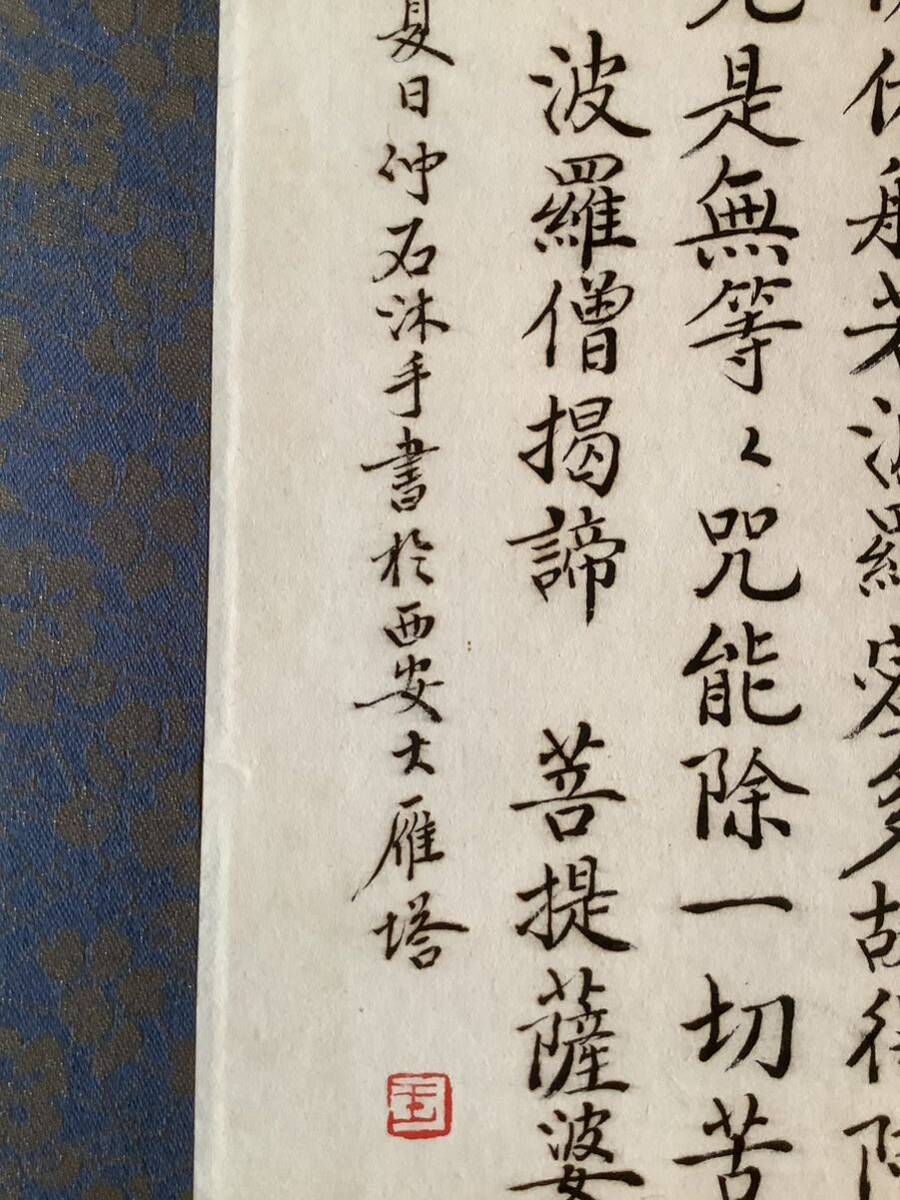 伏般若波羅蜜多故得除
是無等〻咒能除一切苦
波羅僧揭諦　菩提薩婆
夏日仲石沐手書於西安大雁塔